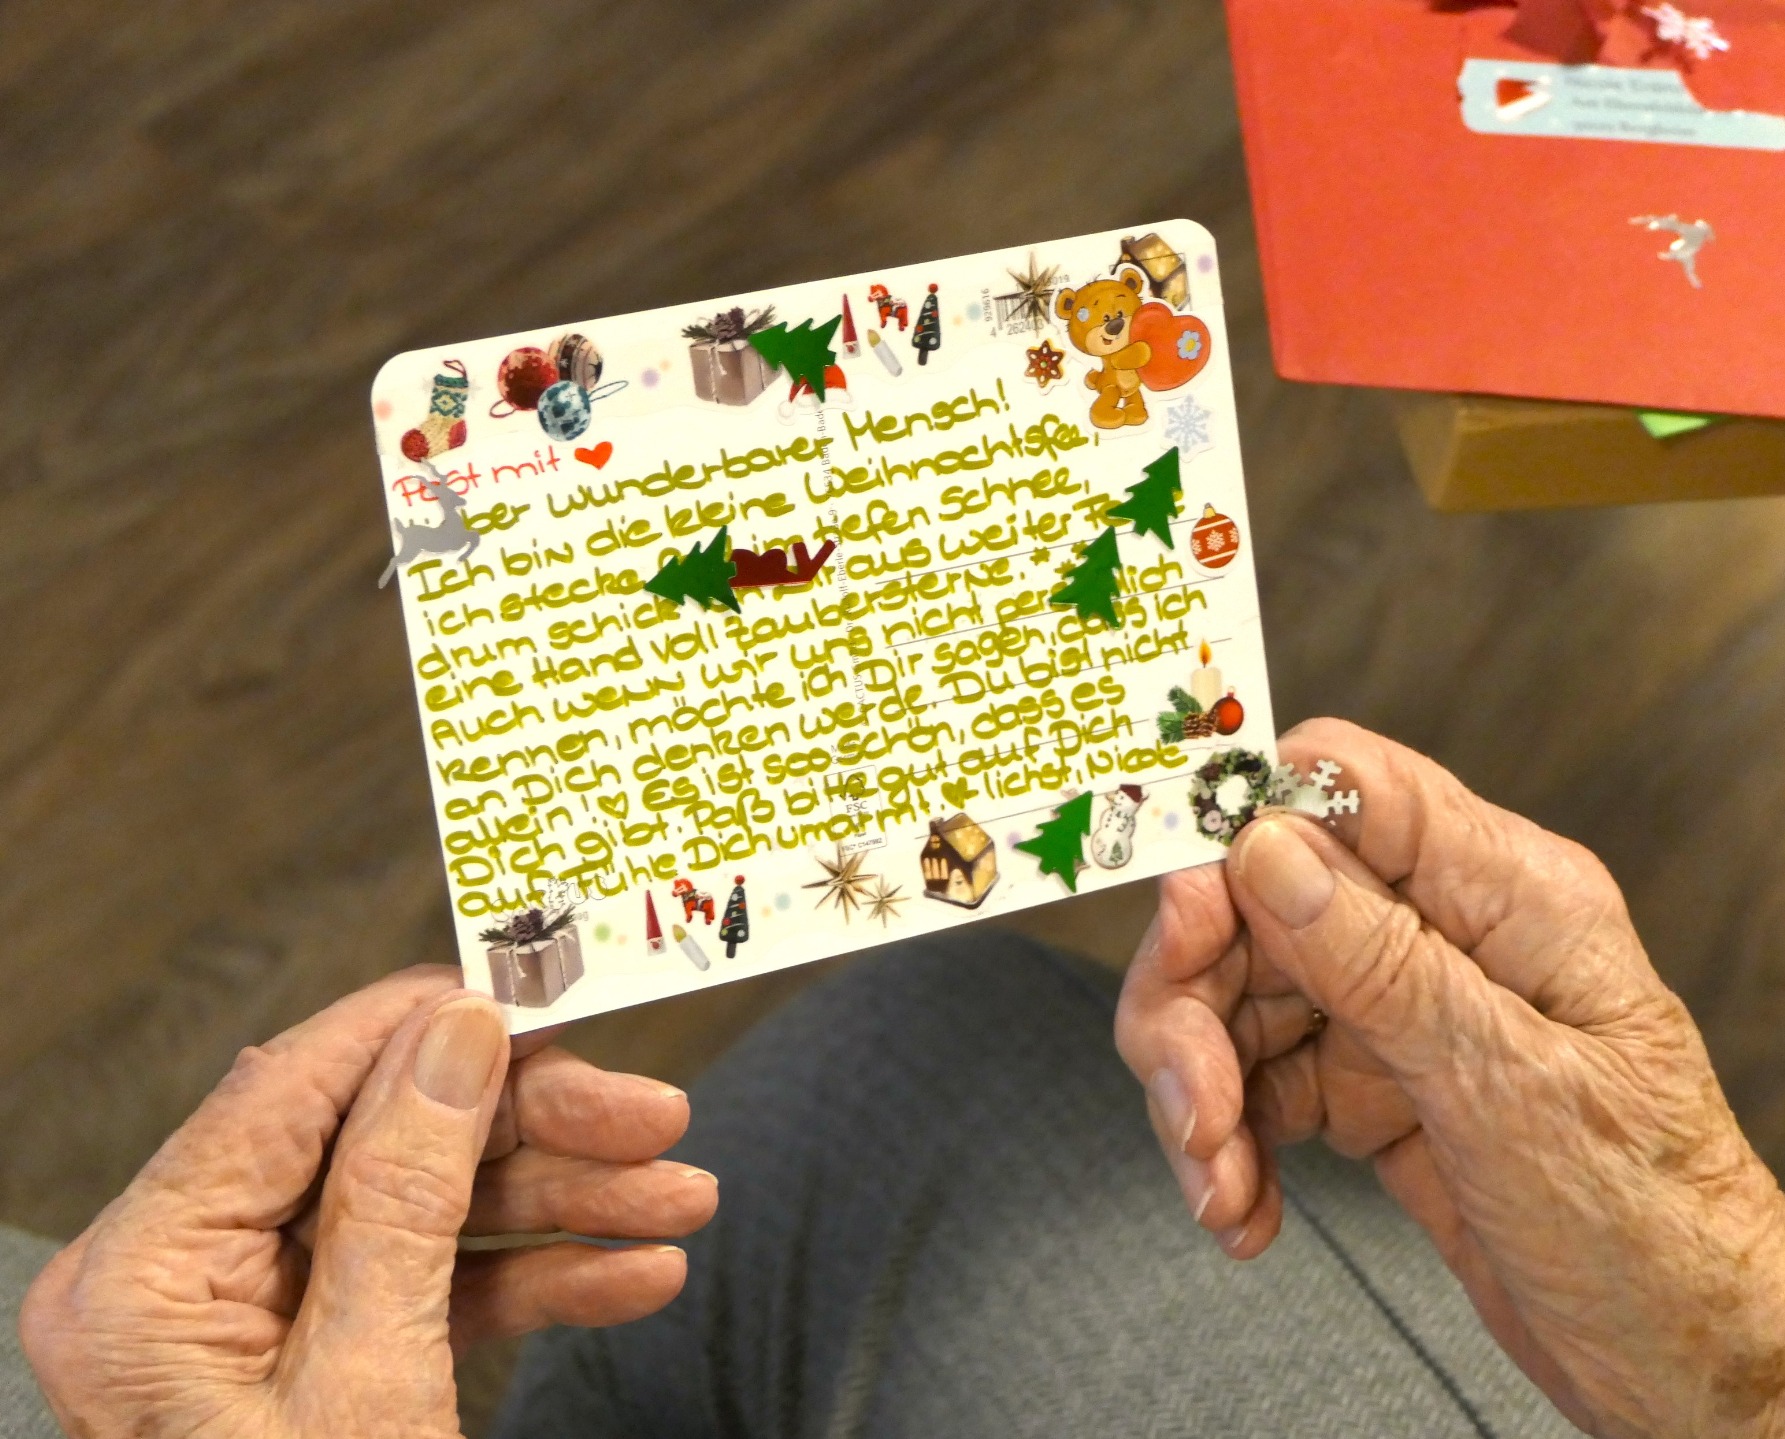 Post mit
ber wunderbarer Mensch!
Ich bin die kleine Weihnachtsfee,
ich stecke im tiefen Schnee,
drum schick aus weiter
eine Hand voll Zaubersterne.
Auch wenn wir uns nicht
kennen, möchte ich Dir sagen, dass ich
an Dich denken werde. Du bist nicht
allein! Es ist soo schön, dass es
Dich gibt. Paß bitte gut auf Dich
auf. Fühle Dich umarmt. lichst, Nicole
929616
4 262403
FSC